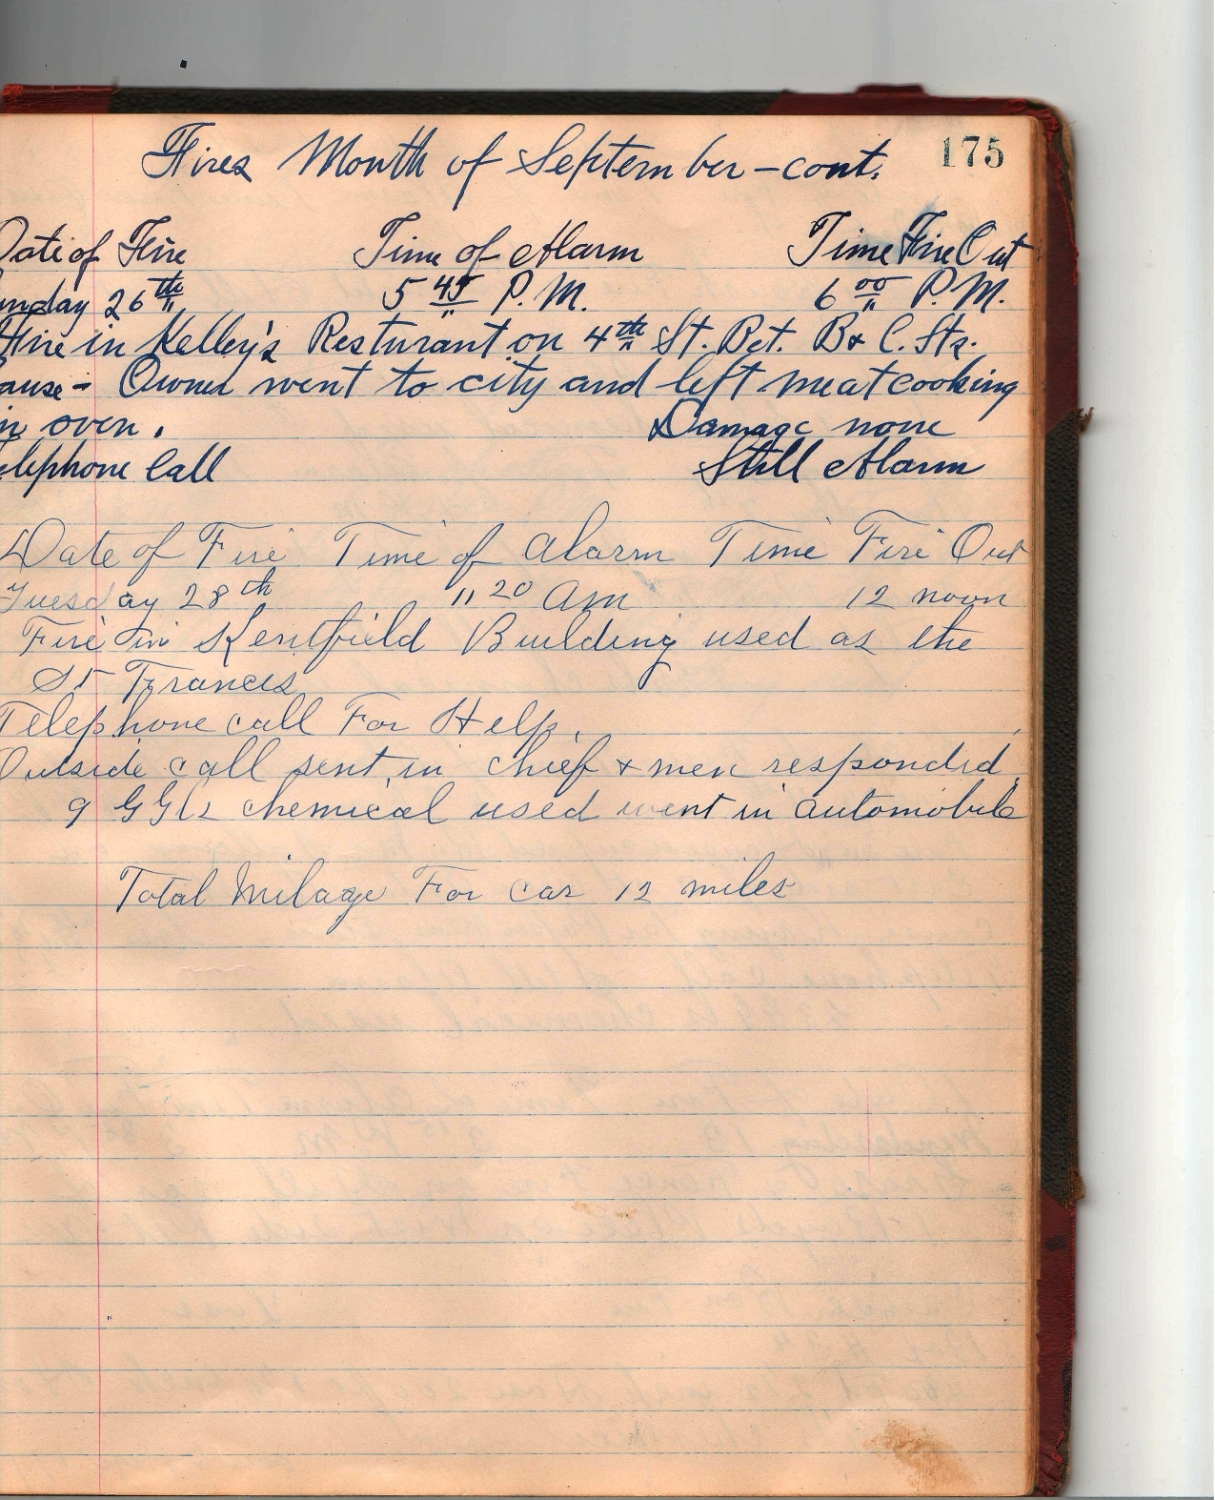 Fires Month of September-cont. 175
Date of Fire Time of Alarm Time Fire Out
unday 26th 5 45 P.M. 6 00 P.M.
Fire in Kelley's Resturant on 4th St. Bet. B & C. Sts.
ause - Owner went to city and left meat cooking
in oven. Damage none
elephone Call Still Alarm
Date of Fire Time of Alarm Time Fire Out
Tuesday 28th 11 20 Am 12 noon
Fire in Kentfield Building used as the
St Frances
Telephone call For Help.
Outside call sent in chief & men responded
9 chemical used went in automobile
Total Milage For car 12 miles